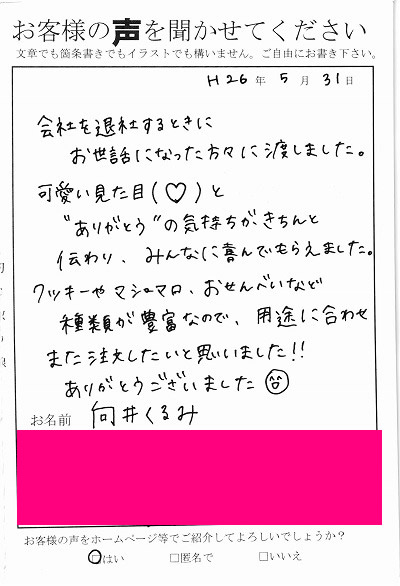 お客様の声を聞かせてください
文章でも箇条書きでもイラストでも構いません。ご自由にお書き下さい。
H26年 5月 31日
会社を退社するときに
お世話になった方々に渡しました。
可愛い見た目(♡)と
"ありがとう"の気持ちがきちんと
伝わり、みんなに喜んでもらえました。
クッキーやマシュマロ、おせんべいなど
種類が豊富なので、用途に合わせ
また注文したいと思いました!!
ありがとうございました
お名前 向井くるみ
お客様の声をホームページ等でご紹介してよろしいでしょうか?
□はい □匿名で □いいえ